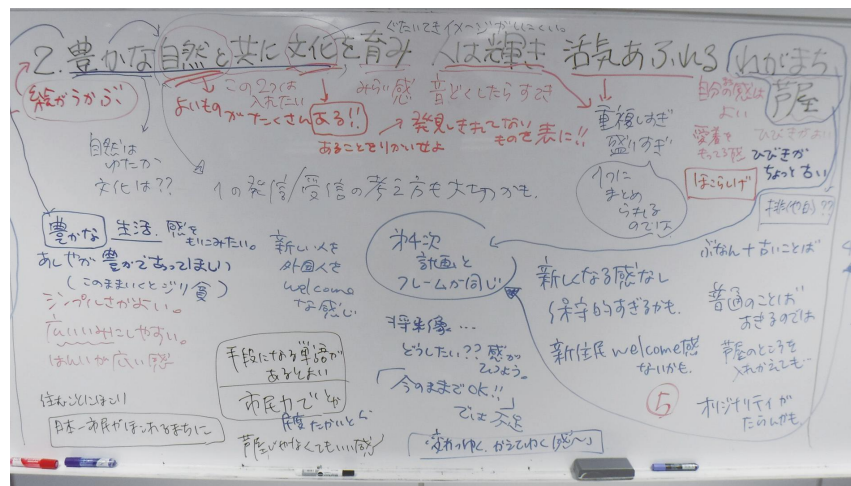 ぐたいてきイメージがしにくい。
2. 豊かな自然と共に文化を育み 人は輝き 活気あふれる わがまち
芦屋
絵がうかぶ
この2つは
入れたい
よいものがたくさんある!!
みらい感
音どくしたらすてき
→発見しきれてない
ものを表に!!
あることをりかいせよ
重複しすぎ
盛りすぎ
1つに
まとめ
られる
のでは
自分の感は
よい
愛着を
もってる感
ほこらしげ
ひびきがよい
ひびきが
ちょっと古い
排他的??
自然は
ゆたか
文化は??
1の発信/受信の考え方も大切かも。
豊かな 生活、感を
もりこみたい。
あしやが豊かであってほしい
(このままいくとジリ貧)
シンプルさがよい。
広いいみにしやすい。
はんいが広い感
住むことにほこり
日本一市民がほこれるまちに
新しい人を
外国人を
welcome
な感じ
第4次
計画と
フレームが同じ
手段になる単語が
あるとよい
市民力でとか
民度たかいとら
芦屋じゃなくてもいい感
将来像…
どうしたい?? 感が
ひつよう。
「今のままでOK!!」
では不足
「変わりゆく、かえてゆく感〜」
新しくなる感なし
保守的すぎるかも。
新住民welcome感
ないかも。
ぶなん+古いことば
普通のことば
すぎるのでは
芦屋のところを
入れかえても
⑤
オリジナリティが
たらんかも。